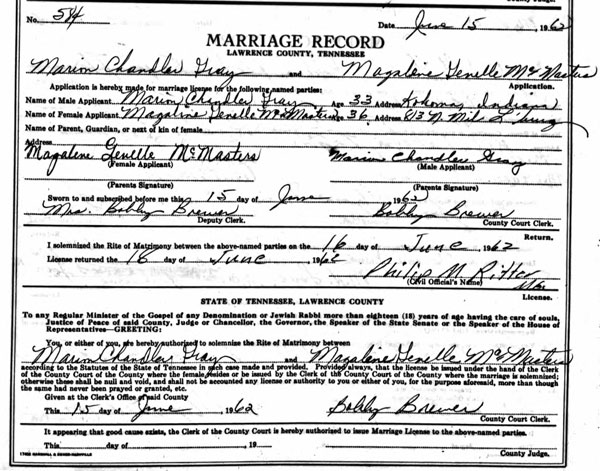 County Judge.
No. 514 Date June 15 1962
MARRIAGE RECORD
LAWRENCE COUNTY, TENNESSEE
Marion Chandler Gray and Magalene Genelle McMasters
Application is hereby made for marriage license for the following named parties: Application.
Name of Male Applicant Marion Chandler Gray Age 33 Address Kokomo, Indiana
Name of Female Applicant Magaline Genelle McMasters Age 36 Address 813 N. Mil. L'burg
Name of Parent, Guardian, or next of kin of female
Address
Magalene Genelle McMasters Marion Chandler Gray
(Female Applicant) (Male Applicant)
(Parents Signature) (Parents Signature)
Sworn to and subscribed before me this 15 day of June 1962
Mrs. Bobby Brewer Bobby Brewer
Deputy Clerk. County Court Clerk.
Return.
I solemnized the Rite of Matrimony between the above-named parties on the 16 day of June, 1962
License returned the 18 day of June, 1962
Philip M. Ritter
(Civil Official's Name)
License.
STATE OF TENNESSEE, LAWRENCE COUNTY
To any Regular Minister of the Gospel of any Denomination or Jewish Rabbi more than eighteen (18) years of age having the care of souls,
Justice of Peace of said County, Judge or Chancellor, the Governor, the Speaker of the State Senate or the Speaker of the House of
Representatives—GREETING:
You, or either of you, are hereby authorized to solemnize the Rite of Matrimony between
Marion Chandler Gray and Magalene Genelle McMasters
according to the Statutes of the State of Tennessee in such case made and provided. Provided always, that the license be issued under the hand of the Clerk
of the County Court of the County where the female resides or be issued by the Clerk of the County Court of the County where the marriage is solemnized;
otherwise these shall be null and void, and shall not be accounted any license or authority to you or either of you, for the purpose aforesaid, more than though
the same had never been prayed or granted, etc.
Given at the Clerk's Office of said County
This 15 day of June, 1962 Bobby Brewer
County Court Clerk.
It appearing that good cause exists, the Clerk of the County Court is hereby authorized to issue Marriage License to the above-named parties.
This day of , 19
County Judge.